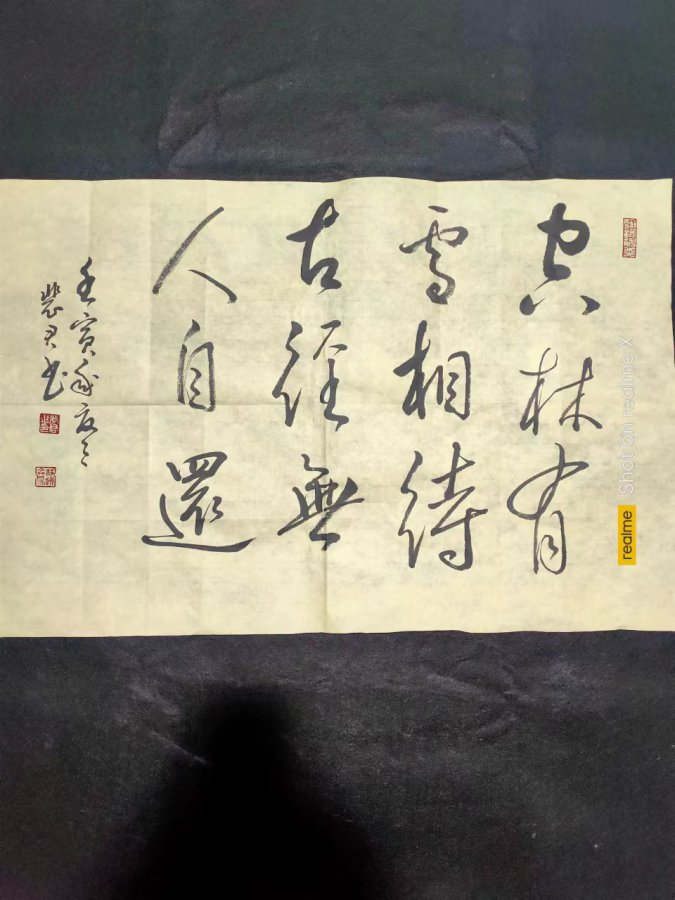 空林有
雪相待
古徑無
人自還
壬寅
君书
realme Shot on realme X